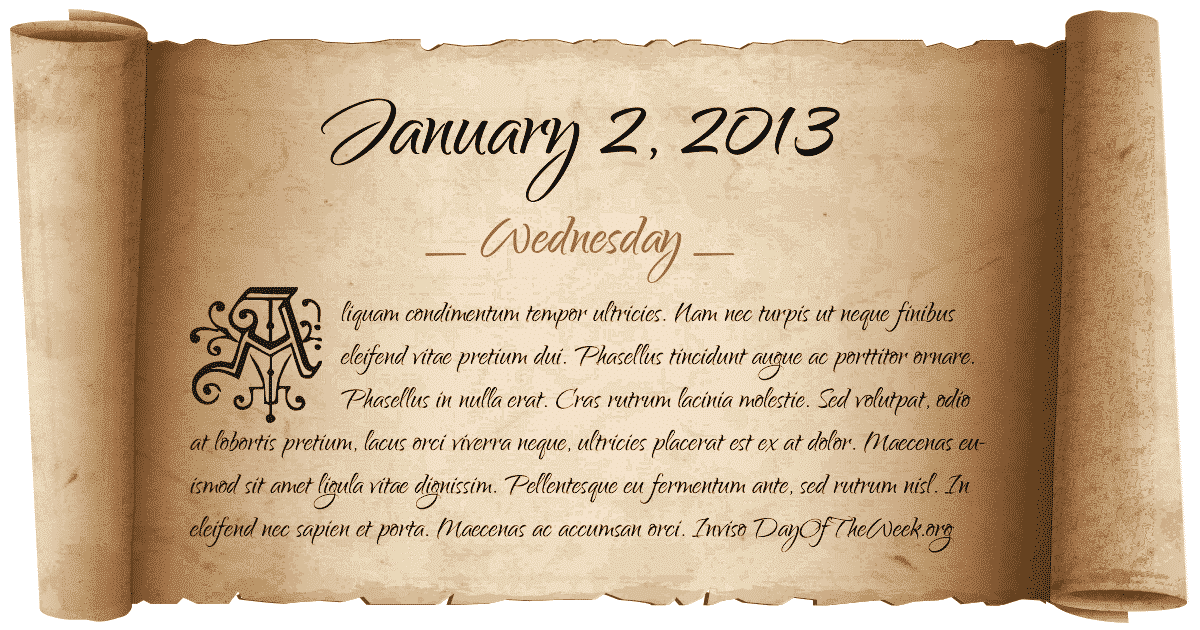 January 2, 2013
Wednesday
Aliquam condimentum tempor ultricies. Nam nec turpis ut neque finibus
eleifend vitae pretium dui. Phasellus tincidunt augue ac porttitor ornare.
Phasellus in nulla erat. Cras rutrum lacinia molestie. Sed volutpat, odio
at lobortis pretium, lacus orci viverra neque, ultricies placerat est ex at dolor. Maecenas eu-
ismod sit amet ligula vitae dignissim. Pellentesque eu fermentum ante, sed rutrum nisl. In
eleifend nec sapien et porta. Maecenas ac accumsan orci. Inviso DayOfTheWeek.org